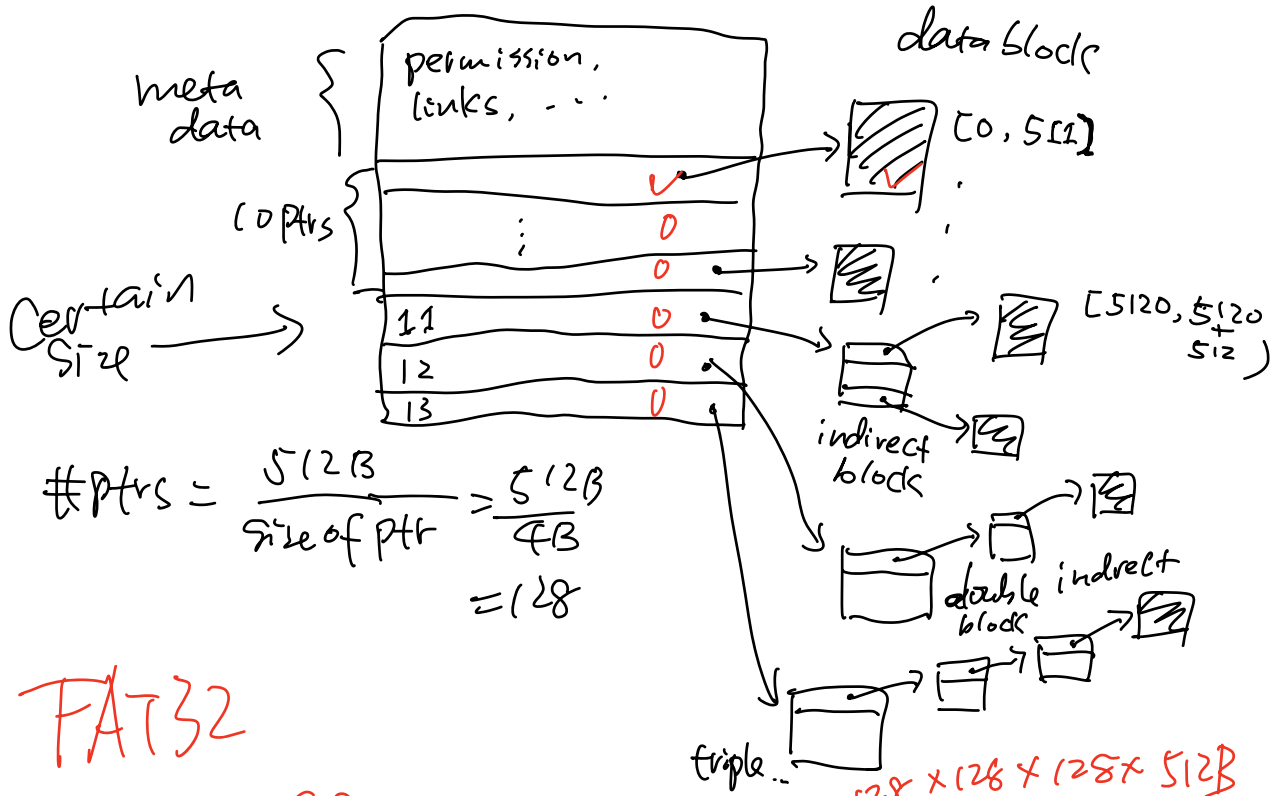 data block
permission,
links, ...
meta
data
[0, 511]
10 ptrs
0
0
Certain
size
11 0
12 0
13 0
[5120, 5120
+
512
)
indirect
block
#ptrs = 512B / size of ptr = 512B / 4B
= 128
double indirect
block
FAT32
triple..
128 × 128 × 128 × 512B